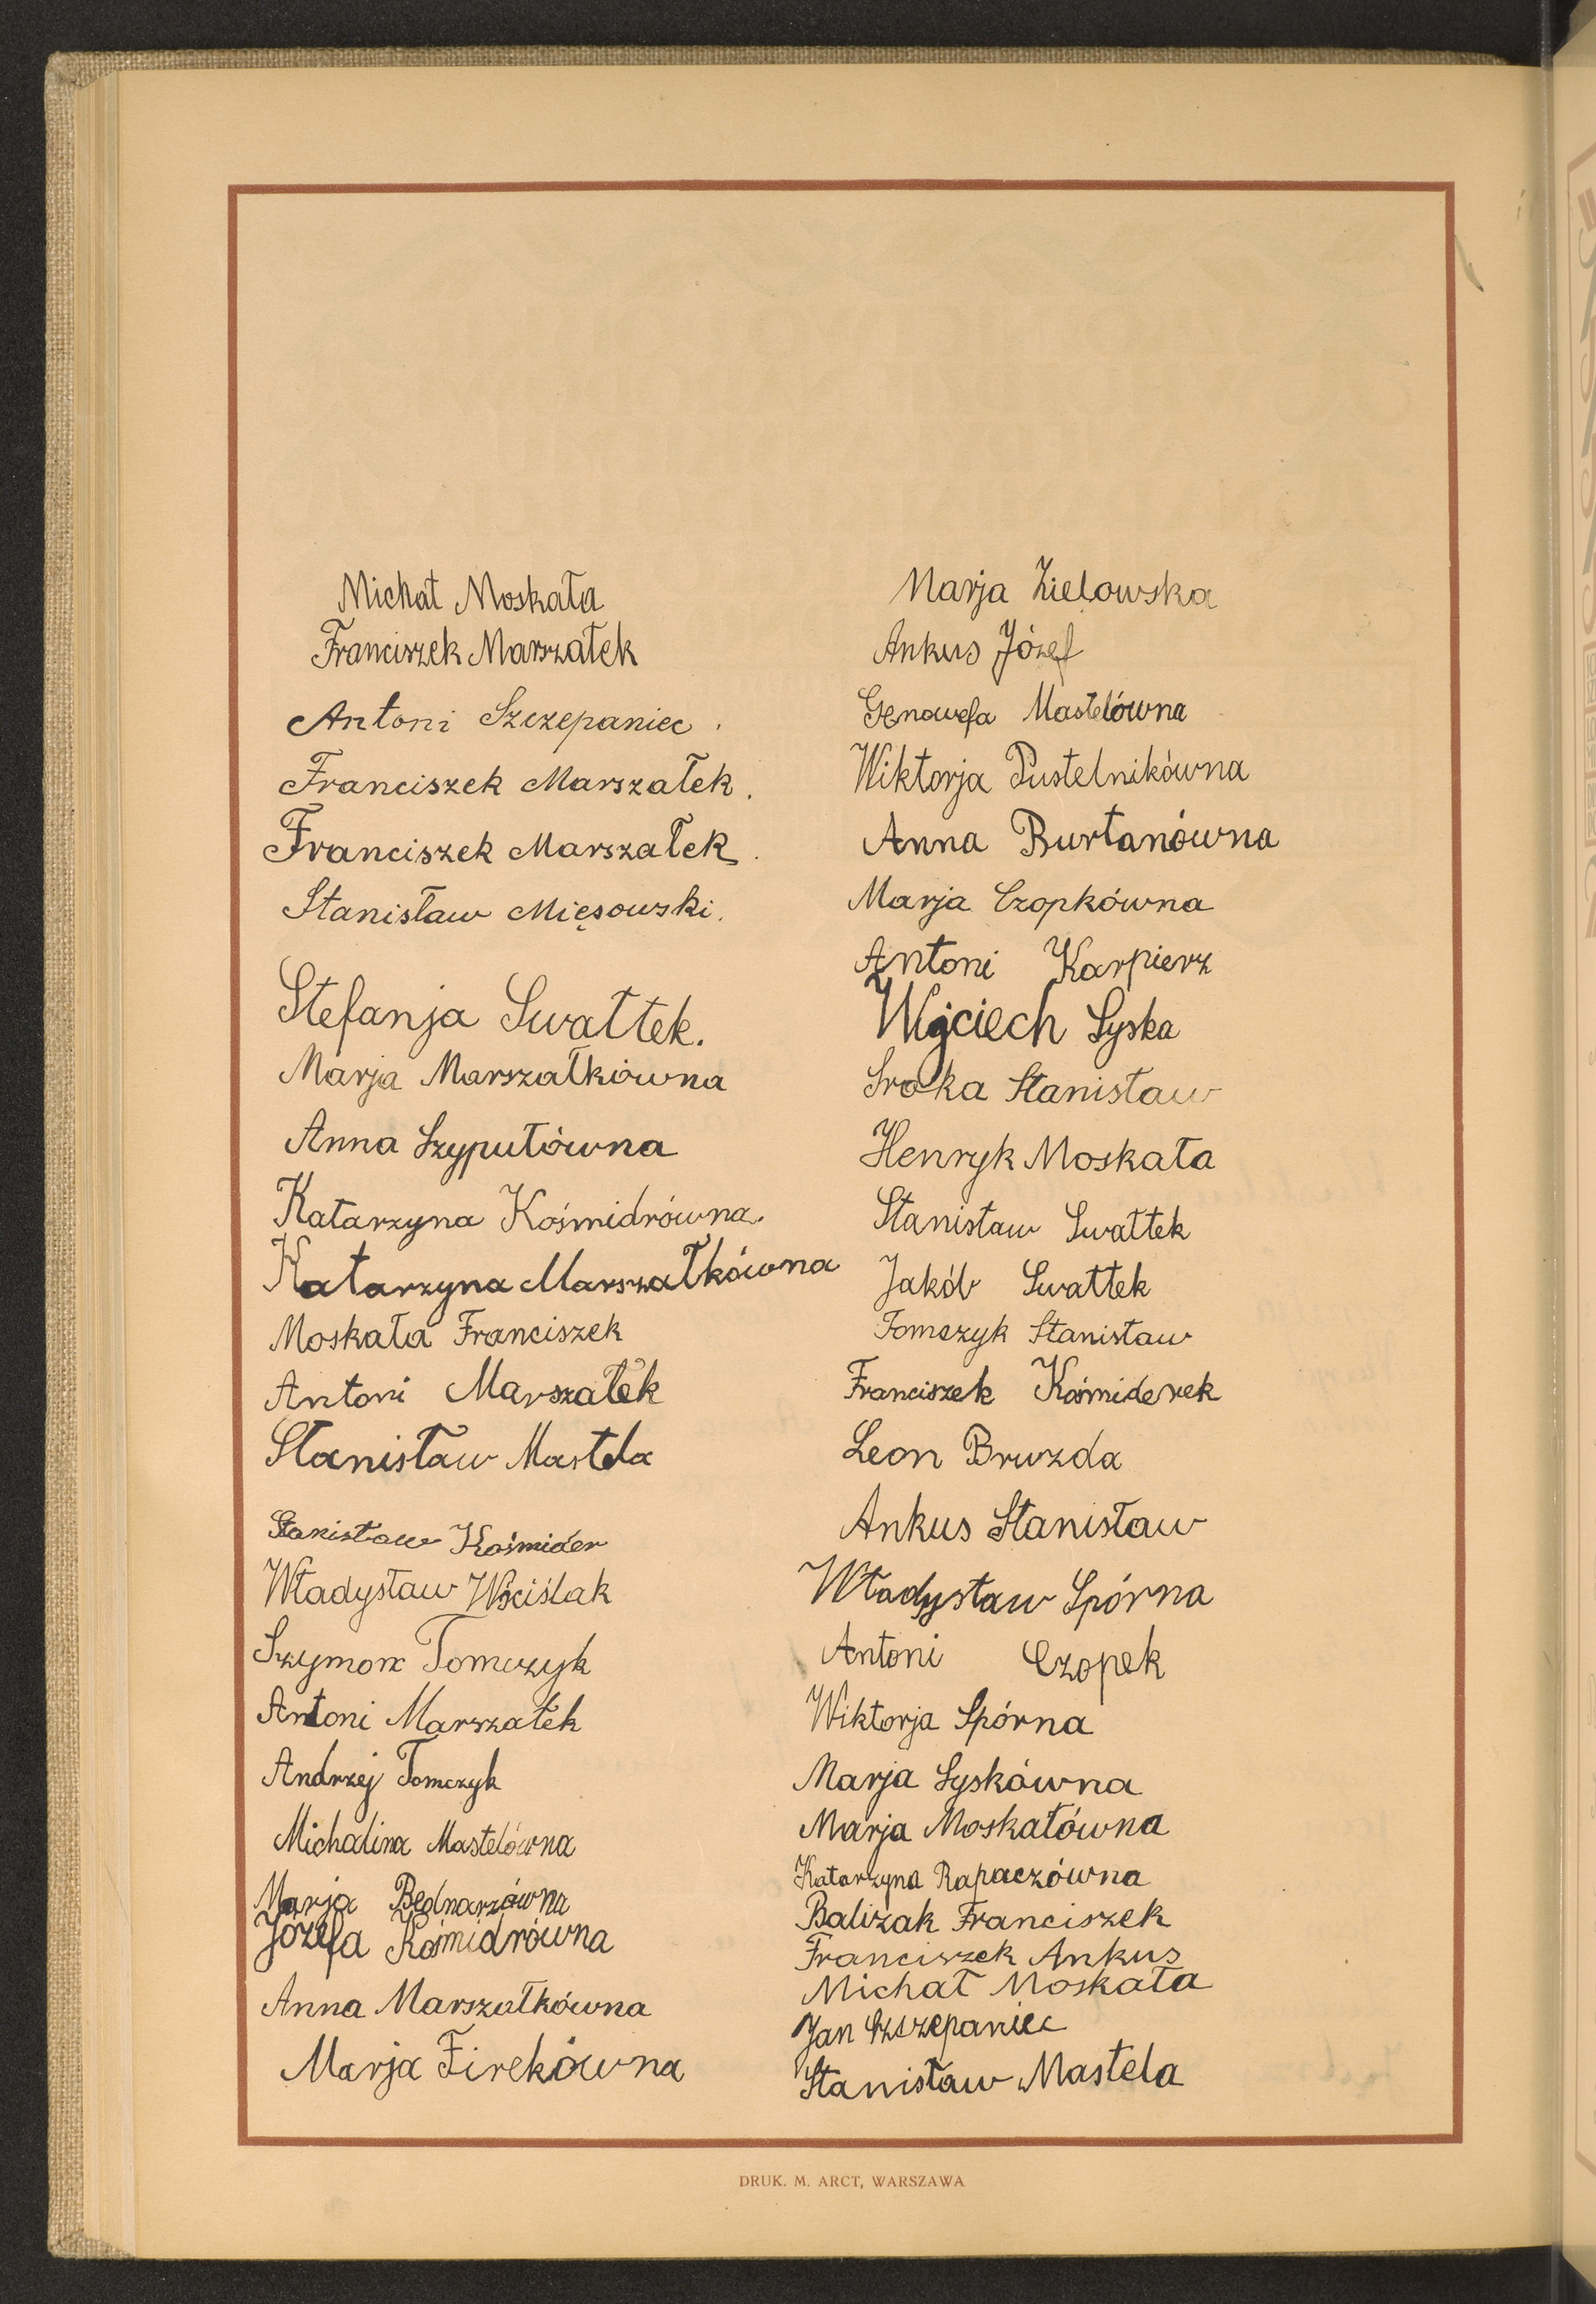 Michał Moskała
Franciszek Marszałek
Antoni Szczepaniec.
Franciszek Marszałek.
Franciszek Marszałek.
Stanisław Mięsowski.
Stefanja Swałtek.
Marja Marszałkówna
Anna Szypułówna
Katarzyna Kośmidrówna.
Katarzyna Marszałkówna
Moskała Franciszek
Antoni Marszałek
Stanisław Mastela
Stanisław Kośmider
Władysław Wściślak
Szymon Tomczyk
Antoni Marszałek
Andrzej Tomczyk
Michalina Mastelówna
Marja Bednarzówna
Józefa Kośmidrówna
Anna Marszałkówna
Marja Firekówna
Marja Zielowska
Ankus Józef
Genowefa Mastelówna
Wiktorja Pustelnikówna
Anna Burtanówna
Marja Czopkówna
Antoni Karpierz
Wojciech Syska
Sroka Stanisław
Henryk Moskała
Stanisław Swałtek
Jakób Swałtek
Tomczyk Stanisław
Franciszek Kośmiderek
Leon Bruzda
Ankus Stanisław
Władysław Spórna
Antoni Czopek
Wiktorja Spórna
Marja Syskówna
Marja Moskałówna
Katarzyna Rapaczówna
Balizak Franciszek
Franciszek Ankus
Michał Moskała
Jan Szczepaniec
Stanisław Mastela
DRUK. M. ARCT, WARSZAWA